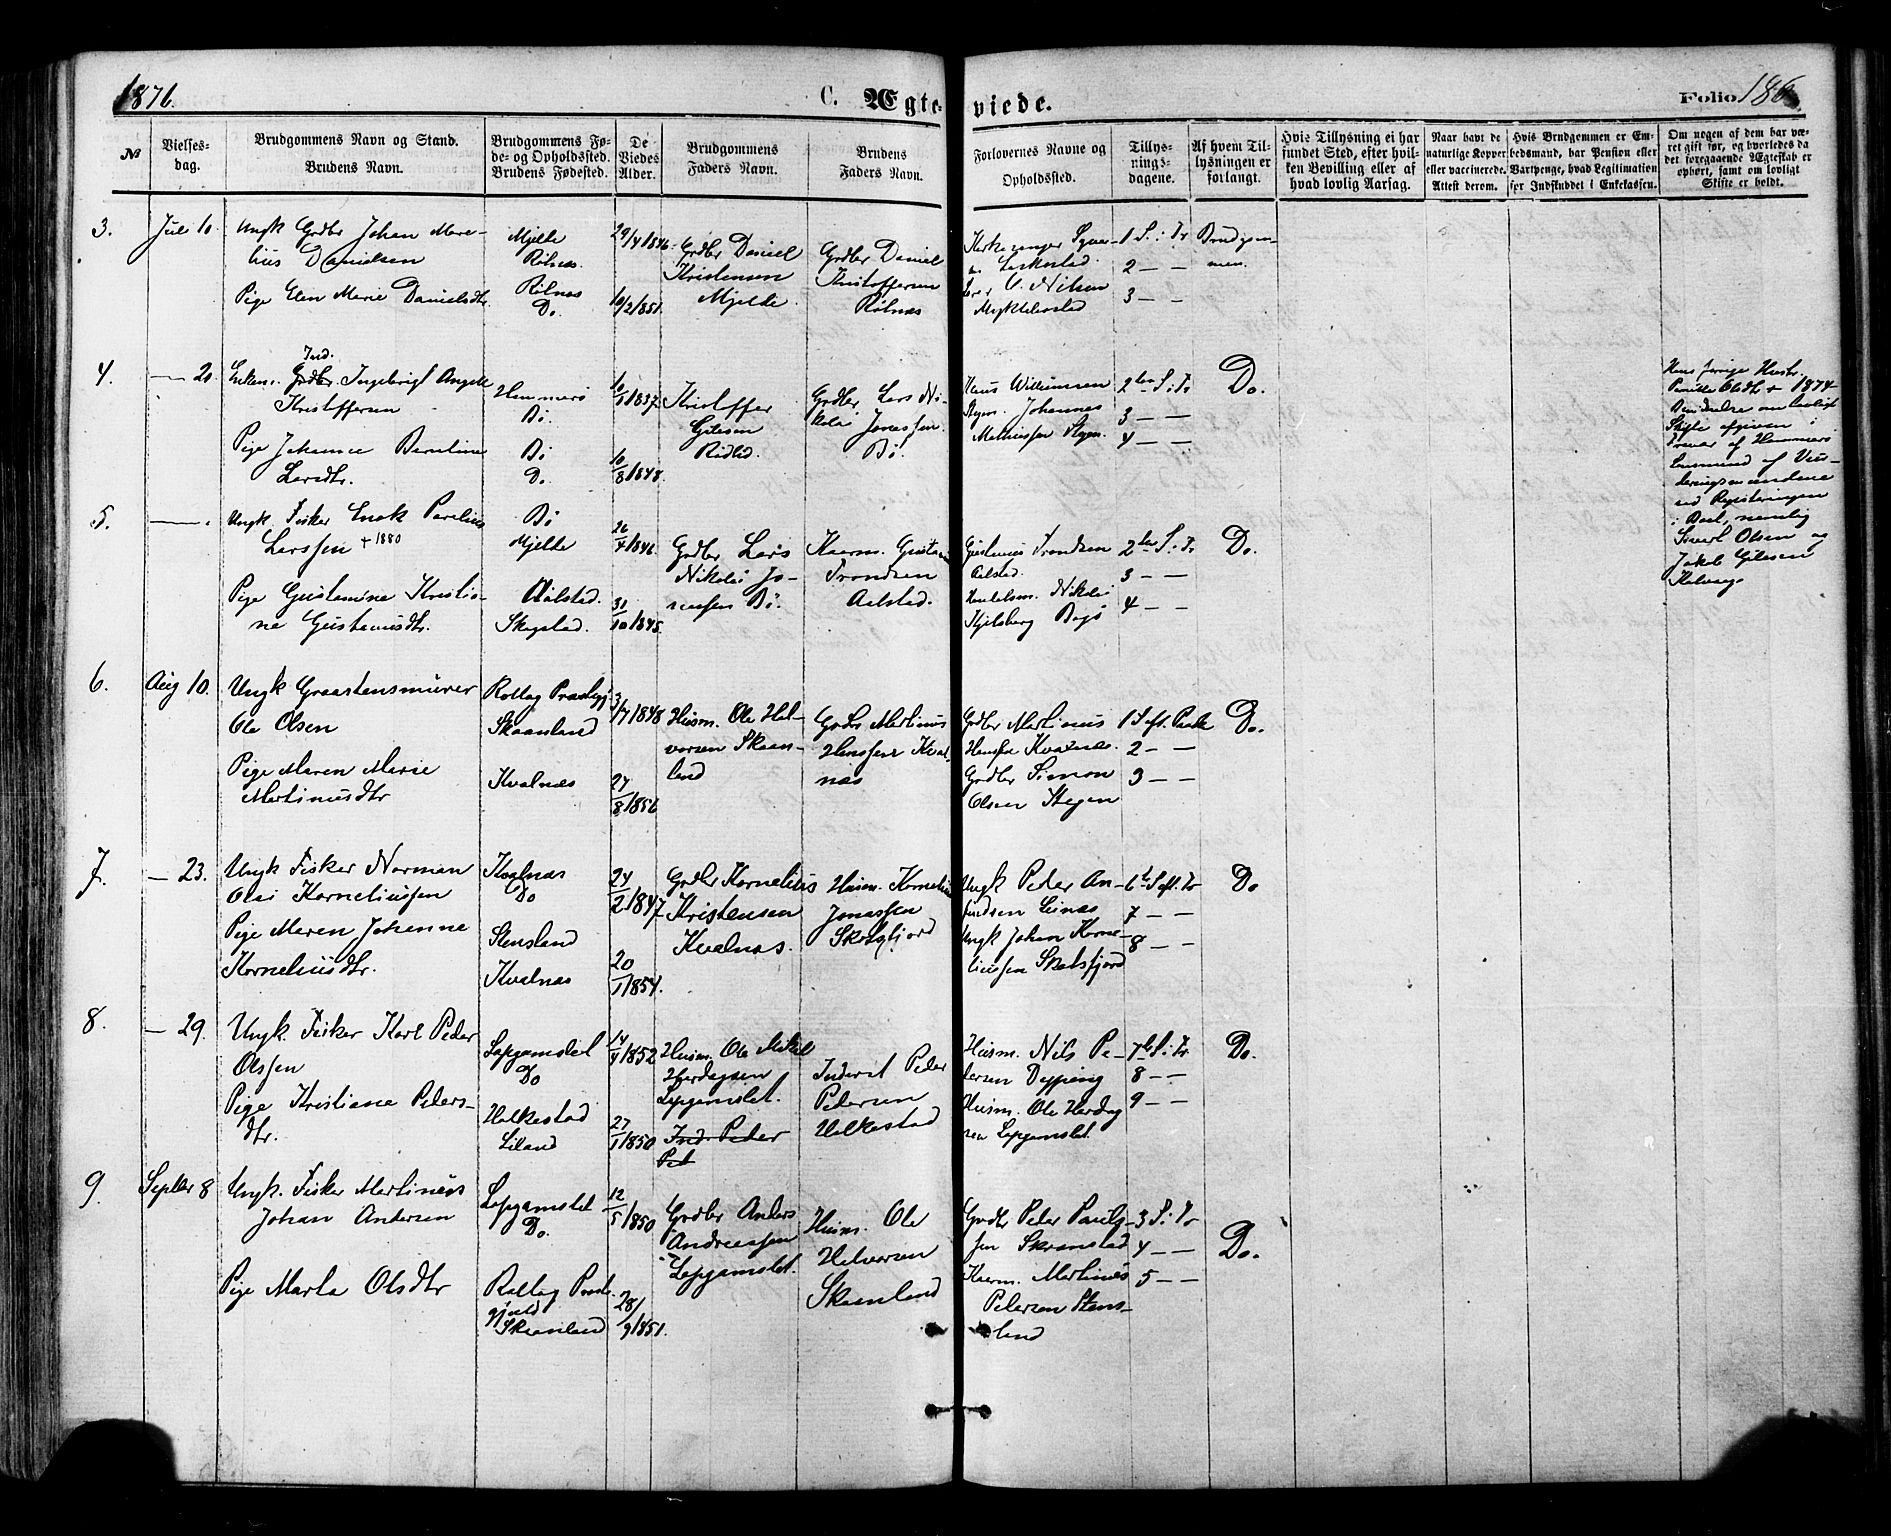 1876.
C. Ægteviede.
Folio 186.
№
Vielsesdag.
Brudgommens Navn og Stand.
Brudens Navn.
Brudgommens Føde- og Opholdssted.
Brudens Fødested.
De Viedes Alder.
Brudgommens Faders Navn.
Brudens Faders Navn.
Forlovernes Navne og Opholdssted.
Tillysningsdagene.
Af hvem Tillysningen er forlangt.
Hvis Tillysning ei har fundet Sted, efter hvilken Bevilling eller af hvad lovlig Aarsag.
Naar havt de naturlige Kopper eller vaccinerede. Attest derom.
Hvis Brudgommen er Embedsmand, har Pension eller Vartpenge, hvad Legitimation for Indskuddet i Enkekassen.
Om nogen af dem har været gift før, og hvorledes da det foregaaende Ægteskab er ophørt, samt om lovligt Skifte er holdt.
3.
Juli 10
Ungk Grdbr Johan Marelius Danielsen
Pige Elen Marie Danielsdtr.
Mjelde
Rølnæs.
Rølnæs
Do.
29/4 1846.
10/2 1851.
Grdbr Daniel
Kristensen
Mjelde.
Grdbr Daniel
Kristoffersen
Rølnæs
Kirkesanger
Nilsen
1 S. i Tr
2 — —
3 — —
Brudgommen.
4.
— 20.
Enkem. Grdbr. Ind. Ingebrigt Angell
Kristoffersen
Pige Johanna Berntine
Larsdtr.
Hammerø
Bø.
Bø
Do.
10/1 1837.
10/8 1848.
Kristoffer
Gilesen
Grdbr Lars Nikolai Jonassen
Bø.
Hans Willumsen
Stegen. Johannes
Mathiassen Stegen.
2den S. i Tr
3 — —
4 — —
Do.
Hans forrige Hustr.
Pernille Olsdtr + 1874
i Boet, nemlig
Sivert Olsen og
Jakob Gilesen
5.
— .
Ungk. Fisker Enok Parelius
Larssen + 1880
Pige Gustamine Kristiane Gustavusdtr.
Bø
Mjelde
Aalstad.
Skogstad.
26/4 1846.
31/10 1845.
Grdbr. Lars
Nikolai Jonassen Bø.
Kaarm. Gustav
Trondsen
Aalstad.
Gustavus Trondsen
Aalstad.
Handelsm. Nikolai
Kjelsberg Bogø
2den S. i Tr
3 — —
4 — —
Do.
6.
Aug 10.
Ungk Graastensmurer
Ole Olsen
Pige Maren Marie
Martinusdtr
Rollag Præstegj.
Skaanland
Kvalnæs
3/7 1848
27/8 1856
Husm. Ole Halvorsen Skaanland
Grdbr Martinus
Hanssen Kvalnæs
Grdbr Martinus
Hanssen Kvalnæs.
Grdbr Simon
Olsen Stegen
1 S. eft. Paaske
2 — —
3 — —
Do.
7.
— 23.
Ungk Fisker Norman
Olai Korneliussen
Pige Maren Johanna
Korneliusdtr.
Kvalnæs
Do
Stensland
Kvalnæs
24/2 1847
20/1 1854.
Grdbr Kornelius
Kristensen
Kvalnæs.
Husm. Kornelius
Jonassen
Skotsfjord
Ungk Peder Amundsen Leinæs
Ungk Johan Korneliussen Skotsfjord
6te S. eft. Tr
7 — —
8 — —
Do
8.
— 29.
Ungk. Fisker Karl Peder
Olssen
Pige Kristiane Pedersdtr.
Lappamslet
Do
Helkestad
Liland
14/4 1852
27/1 1850
Husm. Ole Mikal
Hordagsen
Lappamslet.
Ind. Peder
Ped
Inderst Peder
Pedersen
Helkestad
Husm. Nils Pedersen Dypping
Husm. Ole Hordagsen Lappamslet
7de S. i Tr.
8 — —
9 — —
Do.
9.
Septbr 8
Ungk. Fisker Martinus
Johan Andersen
Pige Marta Olsdtr
Lappamslet
Do.
Rollag Præstegjæld
Skaanland
12/5 1850
28/9 1851.
Grdbr Anders
Andreassen
Lappamslet.
Husm. Ole
Halvorsen
Skaanland
Grdbr Peder Paulssen Skranstad
Kaarm. Martinus
Pedersen Stensland
3 S. i Tr
4 — —
5 — —
Do.